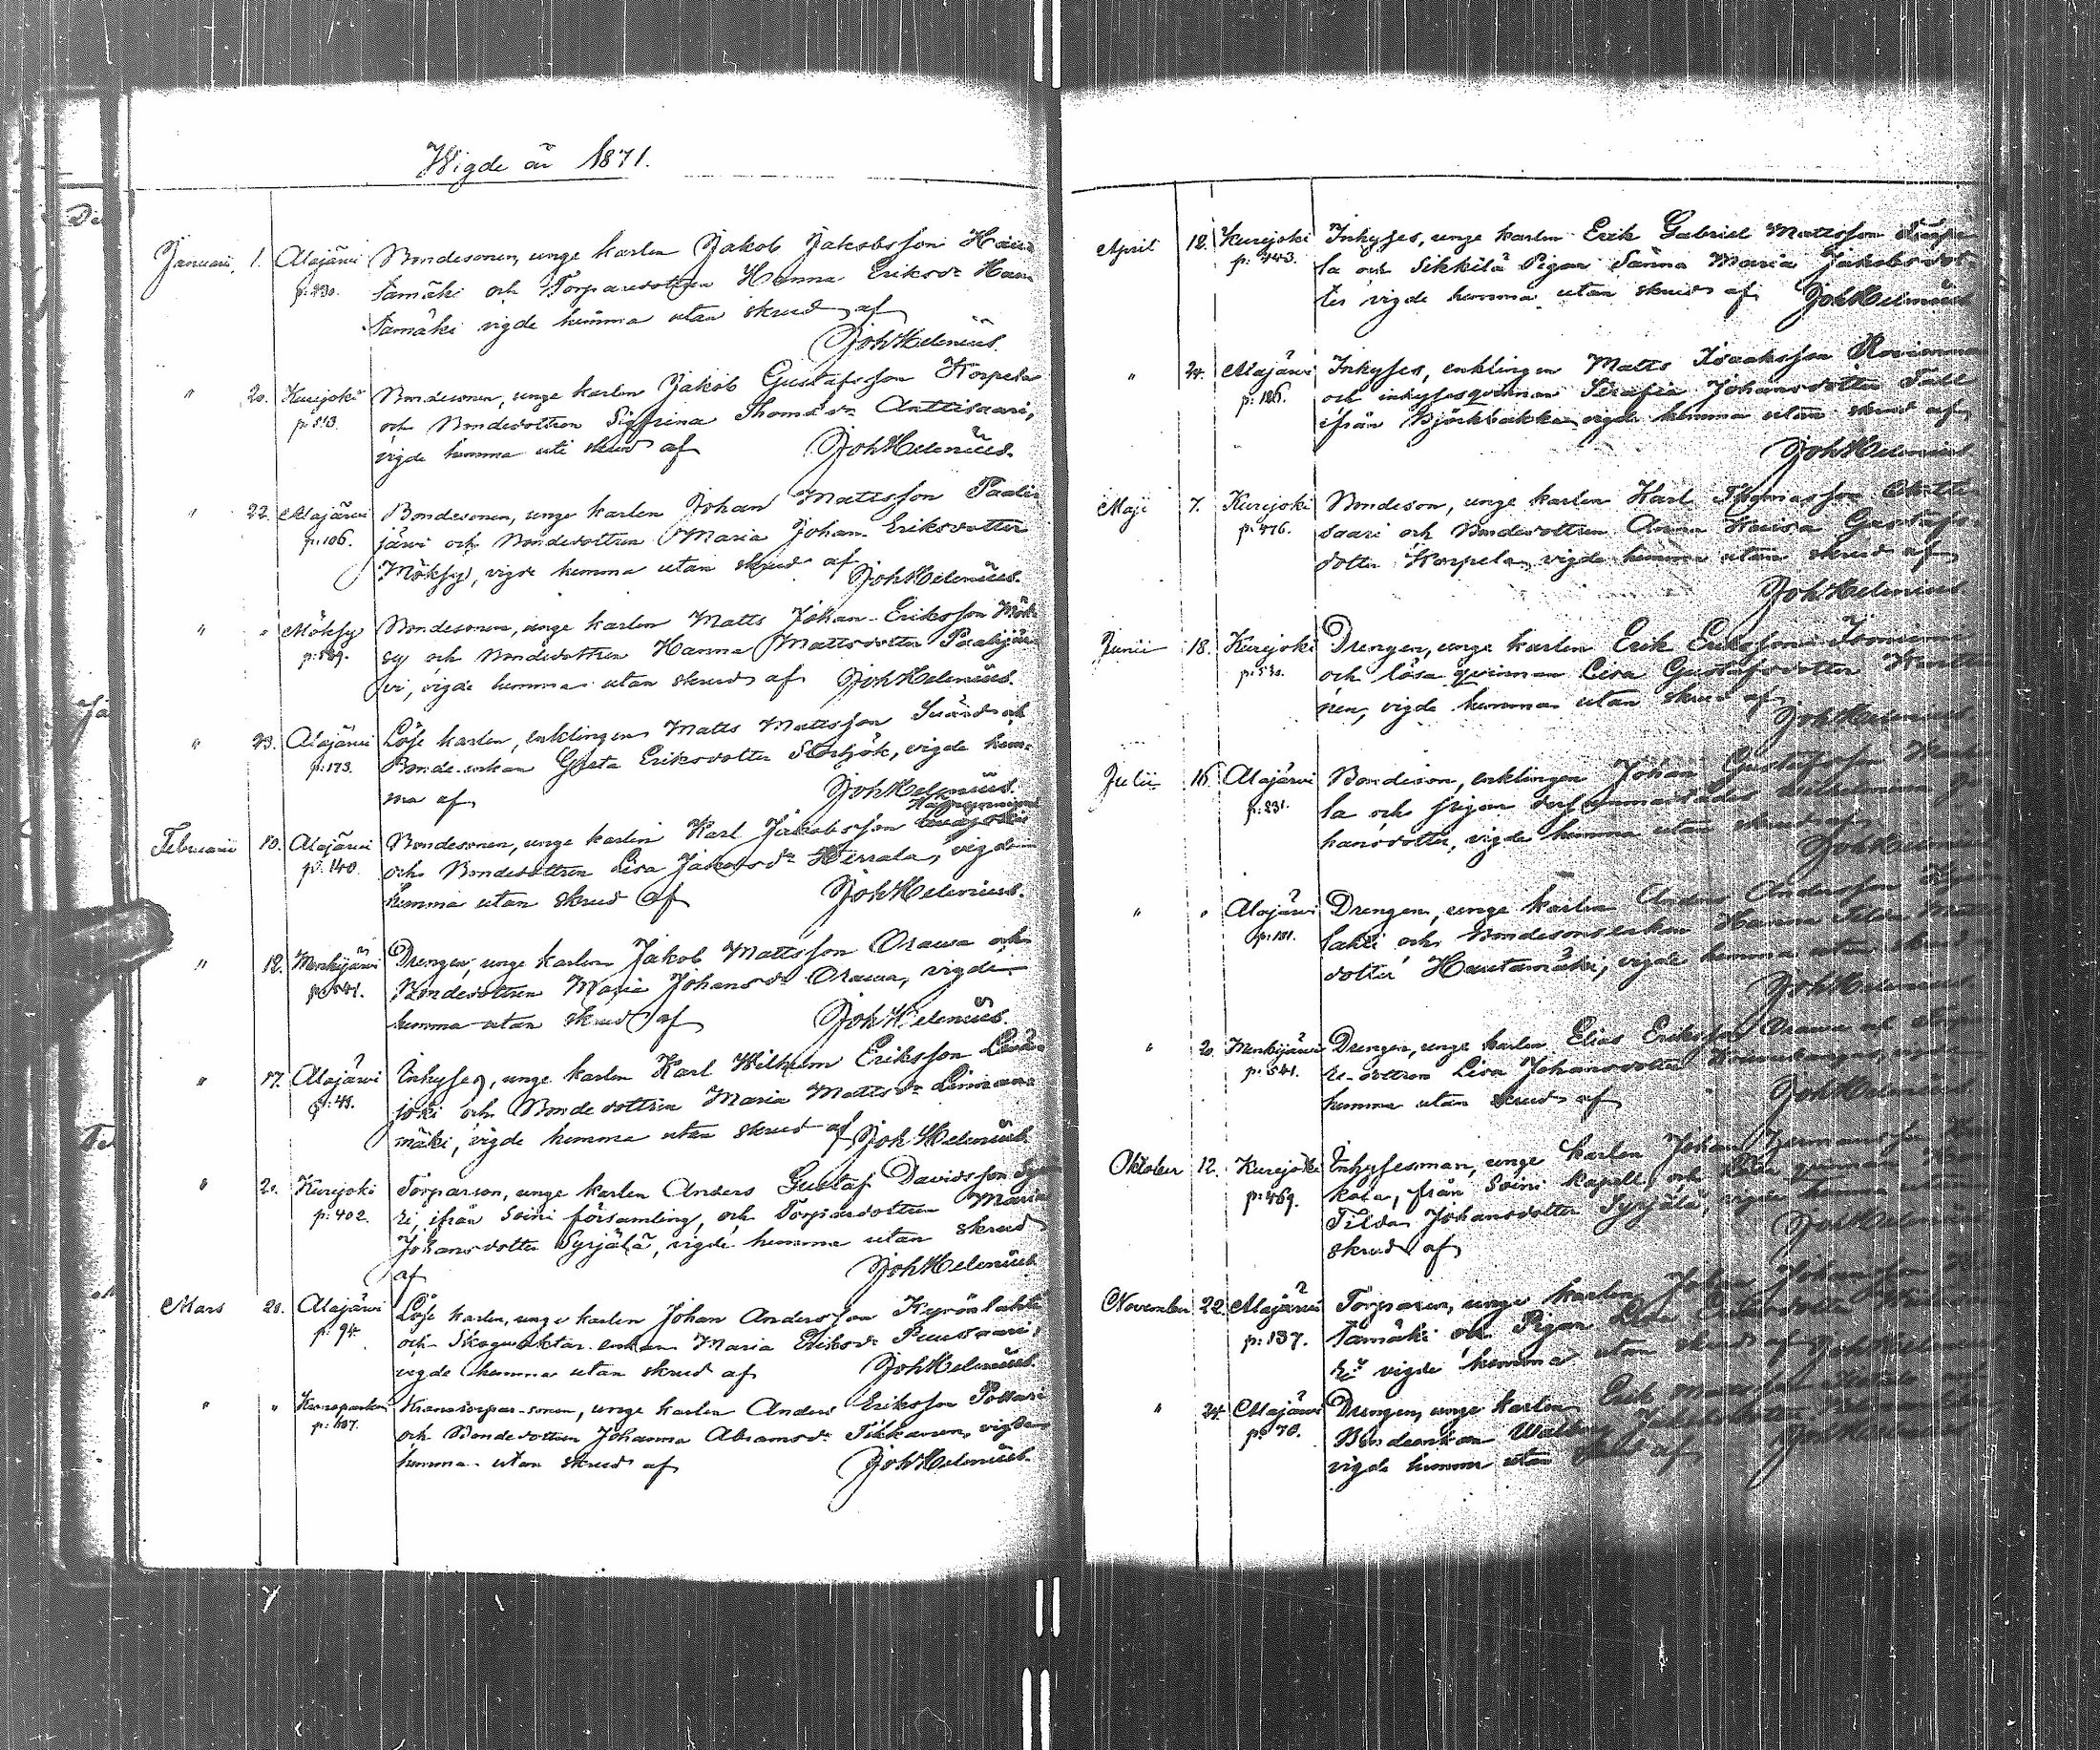 Wigde år 1871.
Januarii, 1. Alajärvi Bondesonen, unge karlen Jakob Jakobsson Hau
p: 230. tamäki och Torparedottren Hanna Eriksdr Hau
tamäki vigde hemma utan skrud af
Joh Helenius.
" 20. Kurejoki Bondesonen, unge karlen Jakob Gustafsson Korpela
p: 513. och Bondedottren Sigfrina Thomasdr Anttisaari,
vigde hemma uti skrud af Joh Helenius.
" 22. Alajärvi Bondesonen, unge karlen Johan Mattsson Paali
p: 106. järvi och Bondedottren Maria Johan Eriksdotter
Möksy, vigde hemma utan skrud af Joh Helenius.
" " Möksy Bondesonen, unge karlen Matts Johan-Eriksson Mök
p: 589. sy och Bondedottren Hanna Mattsdotter Paalijär
vi, vigde hemma utan skrud af Joh Helenius.
" 23. Alajärvi Löse karlen, enklingen Matts Mattsson Svärd och
p: 173. Bonde-enkan Greta Eriksdotter Storbjök, vigde hem-
ma af Joh Helenius.
Februarii 10. Alajärvi Bondesonen, unge karlen Karl Jakobsson
p: 140. och Bondedottren Lisa Jakobsdr Herrala, vigde
hemma utan skrud af Joh Helenius.
" 12. Menkijärvi Drengen, unge karlen Jakob Mattsson Orawa och
p: 541. Bondedottren Maria Johansdr Orawa, vigde
hemma utan skrud af Joh Helenius.
" 17. Alajärvi Inhyses, unge karlen Karl Wilhelm Eriksson
p: 41. joki och Bondedottren Maria Mattsdr
mäki, vigde hemma utan skrud af Joh Helenius.
" 20. Kurejoki Torparson, unge karlen Anders Gustaf Davidsson
p: 402. ri, ifrån Soini församling, och Torparedottren Maria
Johansdotter Syrjälä, vigde hemma utan skrud
af Joh Helenius
Mars 20. Alajärvi Löse karlen, unge karlen Johan Andersson Kyrönlahti
p: 94. och Skogvaktar-enkan Maria Eriksdr Puusaari,
vigde hemma utan skrud af Joh Helenius.
" " Kronoparken Kronotorpar-sonen, unge karlen Anders Eriksson Pollari
p: 607. och Bondedottren Johanna Abramsdr Tikkanen, vigde
hemma utan skrud af Joh Helenius.
April 12. Kurejoki Inhyses, unge karlen Erik Gabriel Mattsson
p: 443. la och Sikkilä Pigan Sanna Maria Jakobsdot-
ter vigde hemma utan skrud af Joh Helenius
" 24. Alajärvi Inhyses, enklingen Matts Isaaksson
p: 186. och inhysesqvinnan Serafia Johansdotter Tall
ifrån Björkbakka vigde hemma utan skrud af
Joh Helenius
Maji 7. Kurejoki Bondeson, unge karlen Karl Thomasson Antti
p: 476. saari och Bondedottren Anna Kaisa Gustafs
dotter Korpela, vigde hemma utan skrud af
Joh Helenius.
Junii 18. Kurejoki Drengen, unge karlen Erik Eriksson Isoniemi
p: 530. och lösa qvinnan Lisa Gustafsdotter
nen, vigde hemma utan skrud af
Joh Helenius
Julii 16. Alajärvi Bondeson, enklingen Johan Gustafsson
p: 231. la och pigan Wilhelmina Jo
hansdotter, vigde hemma utan skrud af
Joh Helenius
" " Alajärvi Drengen, unge karlen Anders Andersson Kyrön
p: 101. lahti och Bondesonsenkan Hanna
dotter Hautamäki, vigde hemma utan skrud
Joh Helenius
" 20. Menkijärvi Drengen, unge karlen Elias Eriksson Orawa och Torpa
p: 541. re-dottren Lisa Johansdotter vigde
hemma utan skrud af Joh Helenius
Oktober 12. Kurejoki Inhysesman, unge karlen Johan Hermansson
p: 469. kola, från Soini kapell, och lösa qvinnan
Tilda Johansdotter Syrjälä, vigde hemma utan
skrud af Joh Helenius
November 22. Alajärvi Torparen, unge karlen Johan Johansson
p: 137. tamäki och Pigan Lisa
vigde hemma utan skrud af Joh Helenius
" 24. Alajärvi Drengen, unge karlen Erik
p: 70. Bondeenkan Walborg Jakobsdotter
vigde hemma utan skrud af Joh Helenius